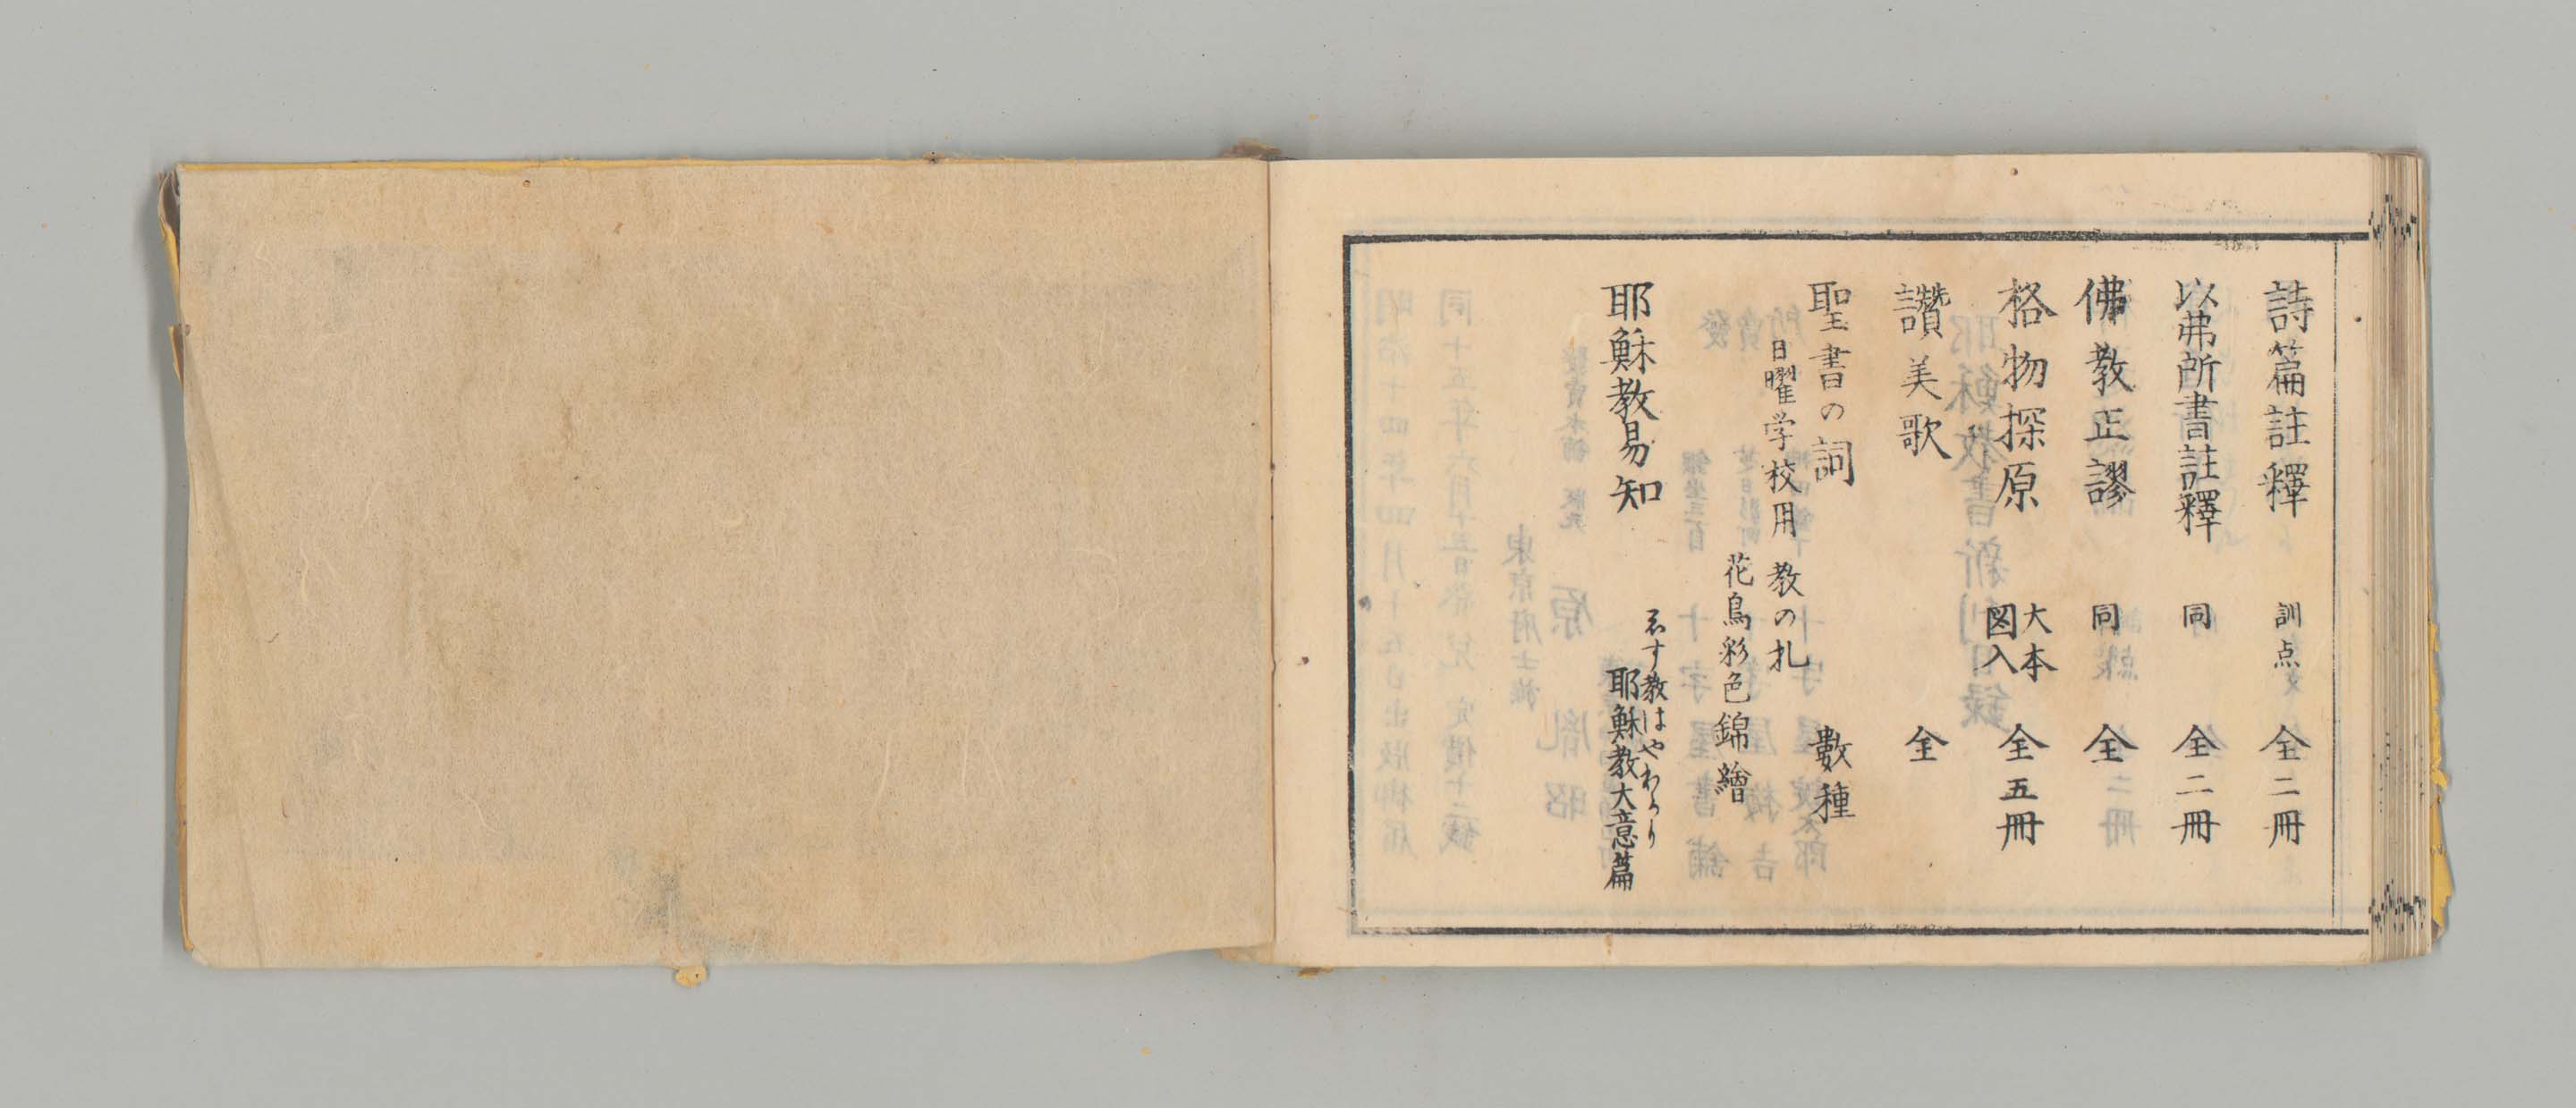 詩篇註釋 訓点 全二冊
以弗所書註釋 同 全二冊
佛教正謬 同 全
格物探原 大本図入 全五冊
讚美歌 全
聖書の詞 數種
日曜学校用 教の札
花鳥彩色錦繪
耶穌教易知
ゑす教はやわかり
耶穌教大意篇